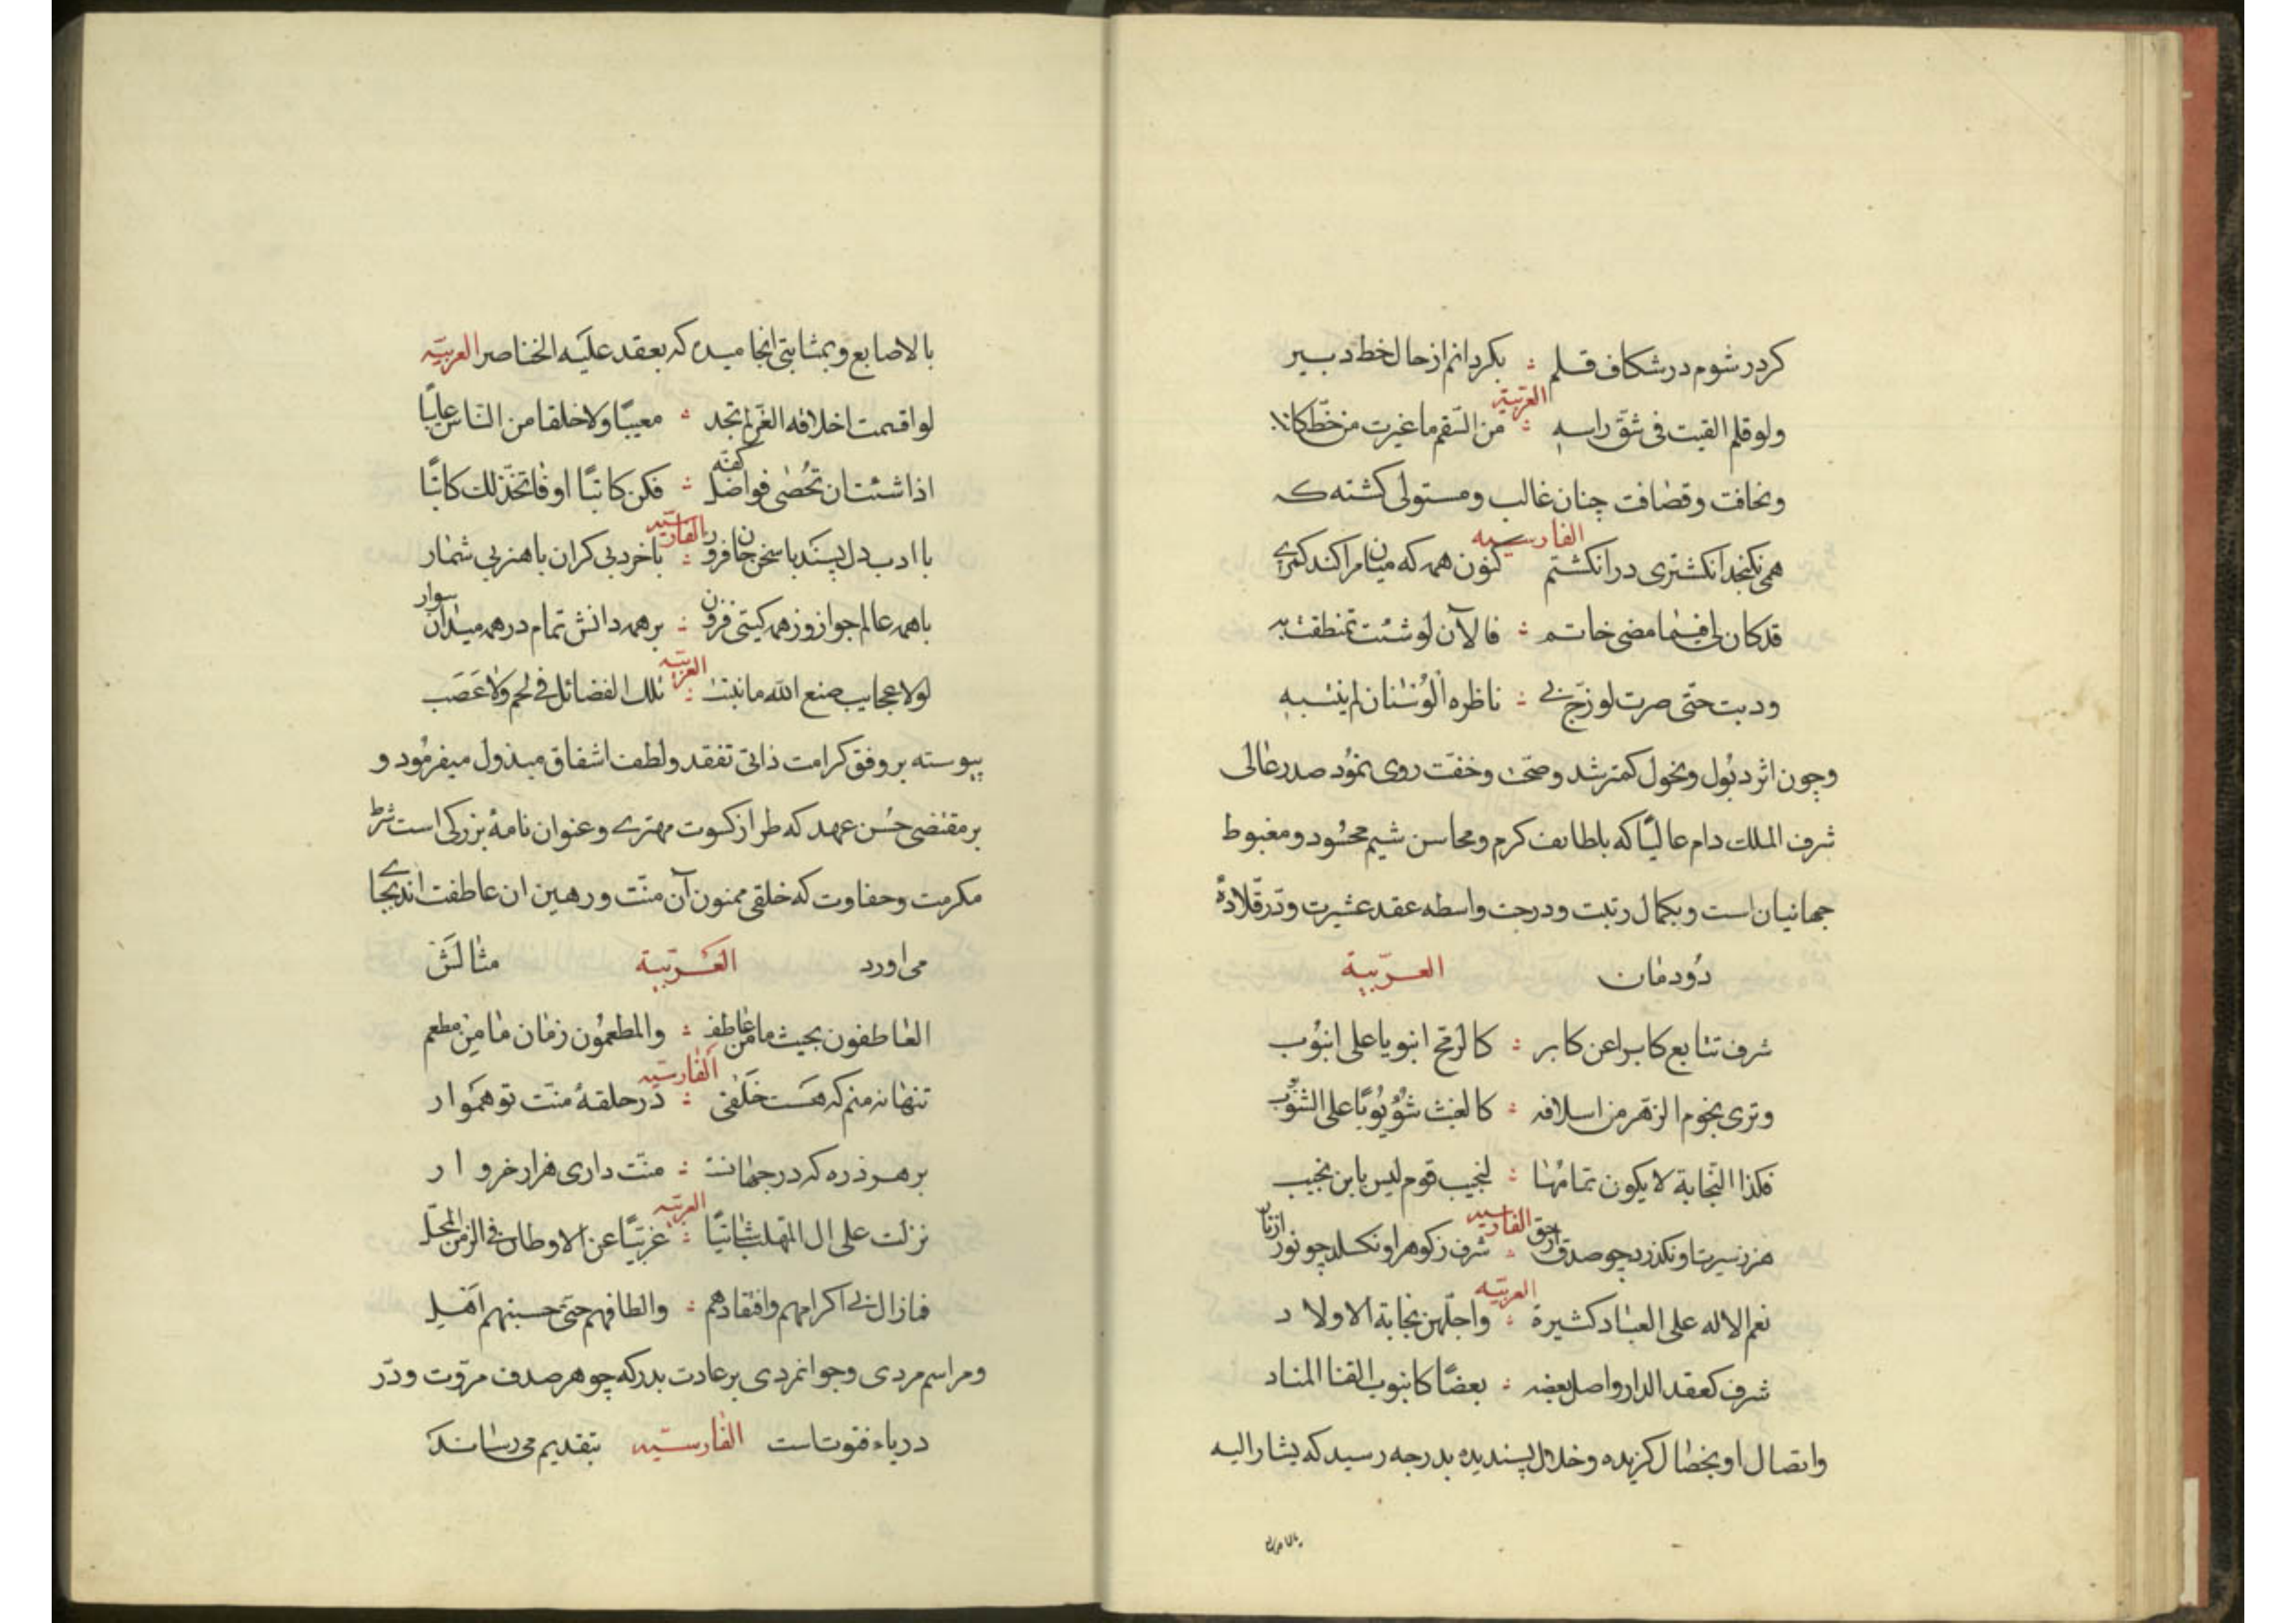 کردر شوم در شکاف قلم ؛ بکردانم از حال خط دبیر
العربیّة
ولو قلم القیت فی شق راسه ؛ من السّقم ما غیرت من خطّ کاتب
ونحافت وقضافت چنان غالب ومستولی کشته که
الفارسیه
همی نکنجد انکشتری در انکشتم کنون همه که میان مرا کند کمری
قد کان لی فیما مضی خاتم ؛ فالآن لو شئت تمنطقت به
ودبت حتّی صرت لو زجّ بی ؛ ناظره الوسنان لم ینتبه
وچون اثر دبول ونحول کمتر شد وصحّت وخفّت روی نمود صدر عالی
شرف الملک دام عالیًا که بلطایف کرم ومحاسن شیم محسود ومغبوط
جهانیان است وبکمال رتبت ودرجت واسطه عقد عشیرت ودرّ قلادهٔ
دودمان العربّیة
شرف تتابع کابرا عن کابر ؛ کالرمح انبوبا علی انبوب
وتری نجوم الزهر من اسلافه ؛ کالغیث شؤبوبًا علی الشؤبوب
فکذا النّجابة لا یکون تمامها ؛ لنجیب قوم لیس بابن نجیب
الفارسیه
هنر ز سیرت او نکذرد چو صدق از حق ؛ شرف ز کوهر او نکسلد چو نور از نار
العربیّه
نعم الاله علی العباد کثیرة ؛ واجلّهن نجابة الاولاد
شرف کعقد الدار واصل بعضه ؛ بعضًا کانبوب القنا المناد
واتصال او بخصال کزیده وخلال پسندیده بدرجه رسید که یشار الیه
بالاصابع
بالاصابع وبمثابتی انجامیده که یعقد علیه الخناصر العربیّه
لو اقسمت اخلاقه الغرّ لم تجد ؛ معیبًا ولا خلقا من النّاس عایبًا
اذا شئت ان تحصی فواضل کفّه ؛ فکن کاتبًا او فاتخذ لک کاتبًا
الفارسیّه
با ادب دل پسند با سخن جانفروز ؛ با خرد بی کران با هنر بی شمار
با همه عالم جواز وز همه کیتی فزون ؛ بر همه دانش تمام در همه میدان سوار
العربیّه
لولا عجایب صنع الله ما نبتت ؛ تلک الفضائل فی لحم ولا عصب
پیوسته بر وفق کرامت ذاتی تفقد ولطف اشفاق مبذول میفرمود و
بر مقتضی حسن عهد که طراز کسوت مهتری وعنوان نامهٔ بزرکی است شرط
مکرمت وحفاوت که خلقی ممنون آن منّت ورهین ان عاطفت اند بجای
می اورد العربّیة مثالش
العاطفون بحیث ما من عاطف ؛ والمطعمون زمان ما من مطعم
الفارسیّه
تنها نه منم که هست خلقی ؛ در حلقهٔ منّت تو هموار
بر هر ذره که در جهانست ؛ منّت داری هزار خروار
العربیّه
نزلت علی ال المهلب شاتیًا ؛ غریبًا عن الاوطان فی الزمن المحل
فما زال بی اکرامهم وافتقادهم ؛ والطافهم حتّی حسبتهم اهلی
ومراسم مردی وجوانمردی بر عادت بدر که جوهر صدف مروّت ودرّ
دریاء فتوت است الفارسیّه بتقدیم می رساند